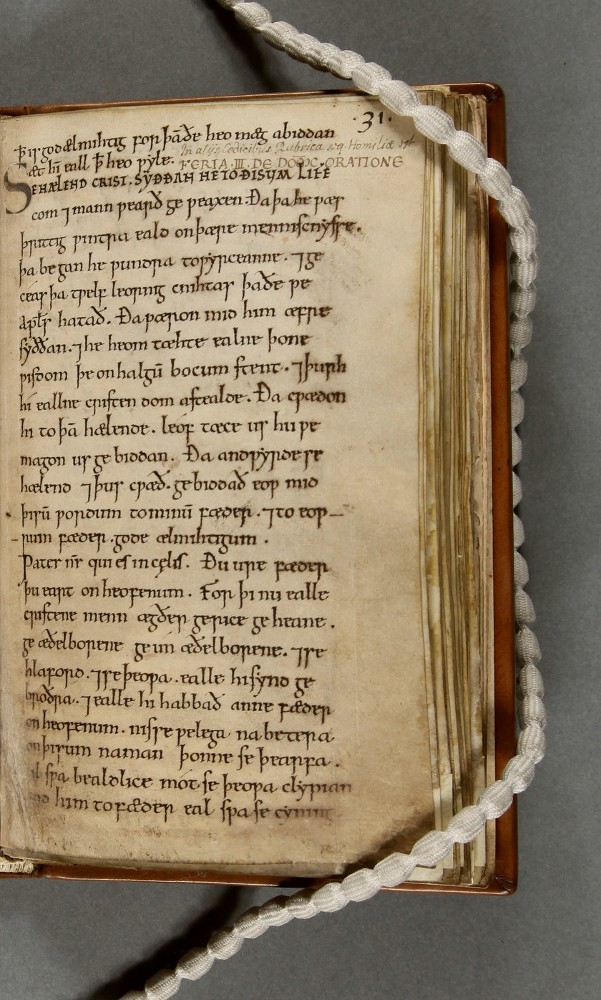 ·31·
ꝥ iſ god ælmihtig for þā ðe heo mæg abiddan
æt hī eall ꝥ heo ƿyle.
In aliis Codicibus Rubrica
FERIA .III. DE DOM̄C. ORATIONE
SE HÆLEND CRIST. SYÐÐAN HE TO ÐISVM LIFE
com ⁊ mann ƿearð geƿeaxen. Ða þa he ƿæſ
þrittig ƿintra eald on þære menniſcnyſſe.
þa began he ƿundra to ƿyrceanne. ⁊ ge
ceaſ þa tƿelf leorning cnihtaſ þa ðe ƿe
apłſ hatað. Ða ƿæron mid him æfre
ſyððan. ⁊ he heom tæhte ealne þone
ƿiſdom þe on halgū bocum ſtent. ⁊ þurh
hi eallne criſten dom aſtealde. Ða cƿædon
hi to þā hælende. leof tæce uſ hu ƿe
magon uſ gebiddan. Ða andƿyrde ſe
hælend ⁊ þuſ cƿæð. gebiddað eoƿ mid
þiſū ƿordum to minū fæder. ⁊ to eoƿ
rum fæder. gode ælmihtigum.
Pater nr̄ qui es in cęliſ. Ðu ure fæder
þu eart on heofenum. For þi nu ealle
criſtene menn ægðer ge rice ge heane.
ge æðelborene ge un æðelborene. ⁊ ſe
hlaford. ⁊ ſe þeoƿa. ealle hi ſynd ge
broðra. ⁊ ealle hi habbað anne fæder
on heofenum. niſ ſe ƿelega na betera
on þiſum naman þonne ſe þearfa.
eal ſƿa bealdlice mot ſe þeoƿa clypian
god him to fæder eal ſƿa ſe cyning